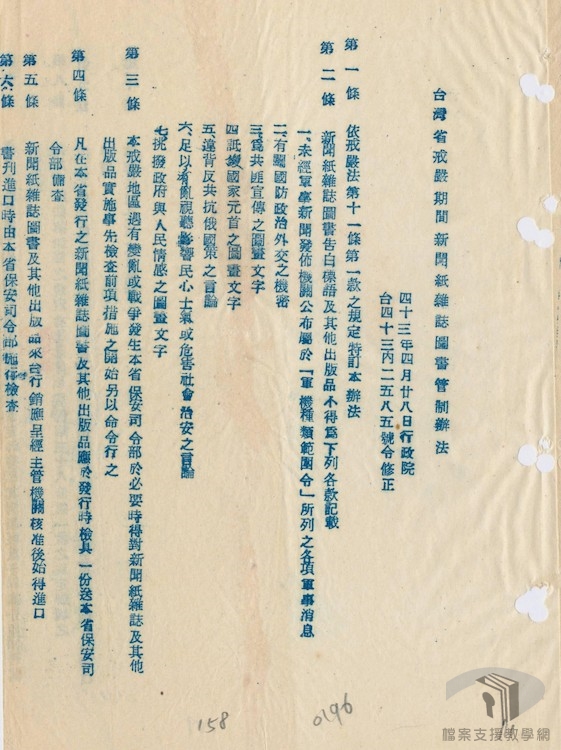 台灣省戒嚴期間新聞紙雜誌圖書管制辦法
四十三年四月廿八日行政院
台四十三內二五八五號令修正
第一條 依戒嚴法第十一條第一款之規定特訂本辦法
第二條 新聞紙雜誌圖書告白標語及其他出版品不得為下列各款記載
一、未經軍事新聞發佈機關公布屬於「軍機種類範圍令」所列之各項軍事消息
二、有關國防政治外交之機密
三、為共匪宣傳之圖畫文字
四、詆譭國家元首之圖畫文字
五、違背反共抗俄國策之言論
六、足以淆亂視聽影響民心士氣或危害社會治安之言論
七、挑撥政府與人民情感之圖畫文字
第三條 本戒嚴地區遇有變亂或戰爭發生本省保安司令部於必要時得對新聞紙雜誌及其他
出版品實施事先檢查前項措施之開始另以命令行之
第四條 凡在本省發行之新聞紙雜誌圖書及其他出版品應於發行時檢具一份送本省保安司
令部備查
第五條 新聞紙雜誌圖書及其他出版品來台行銷應呈經主管機關核准後始得進口
第六條 書刊進口時由本省保安司令部施行檢查
158
0196
檔案支援教學網